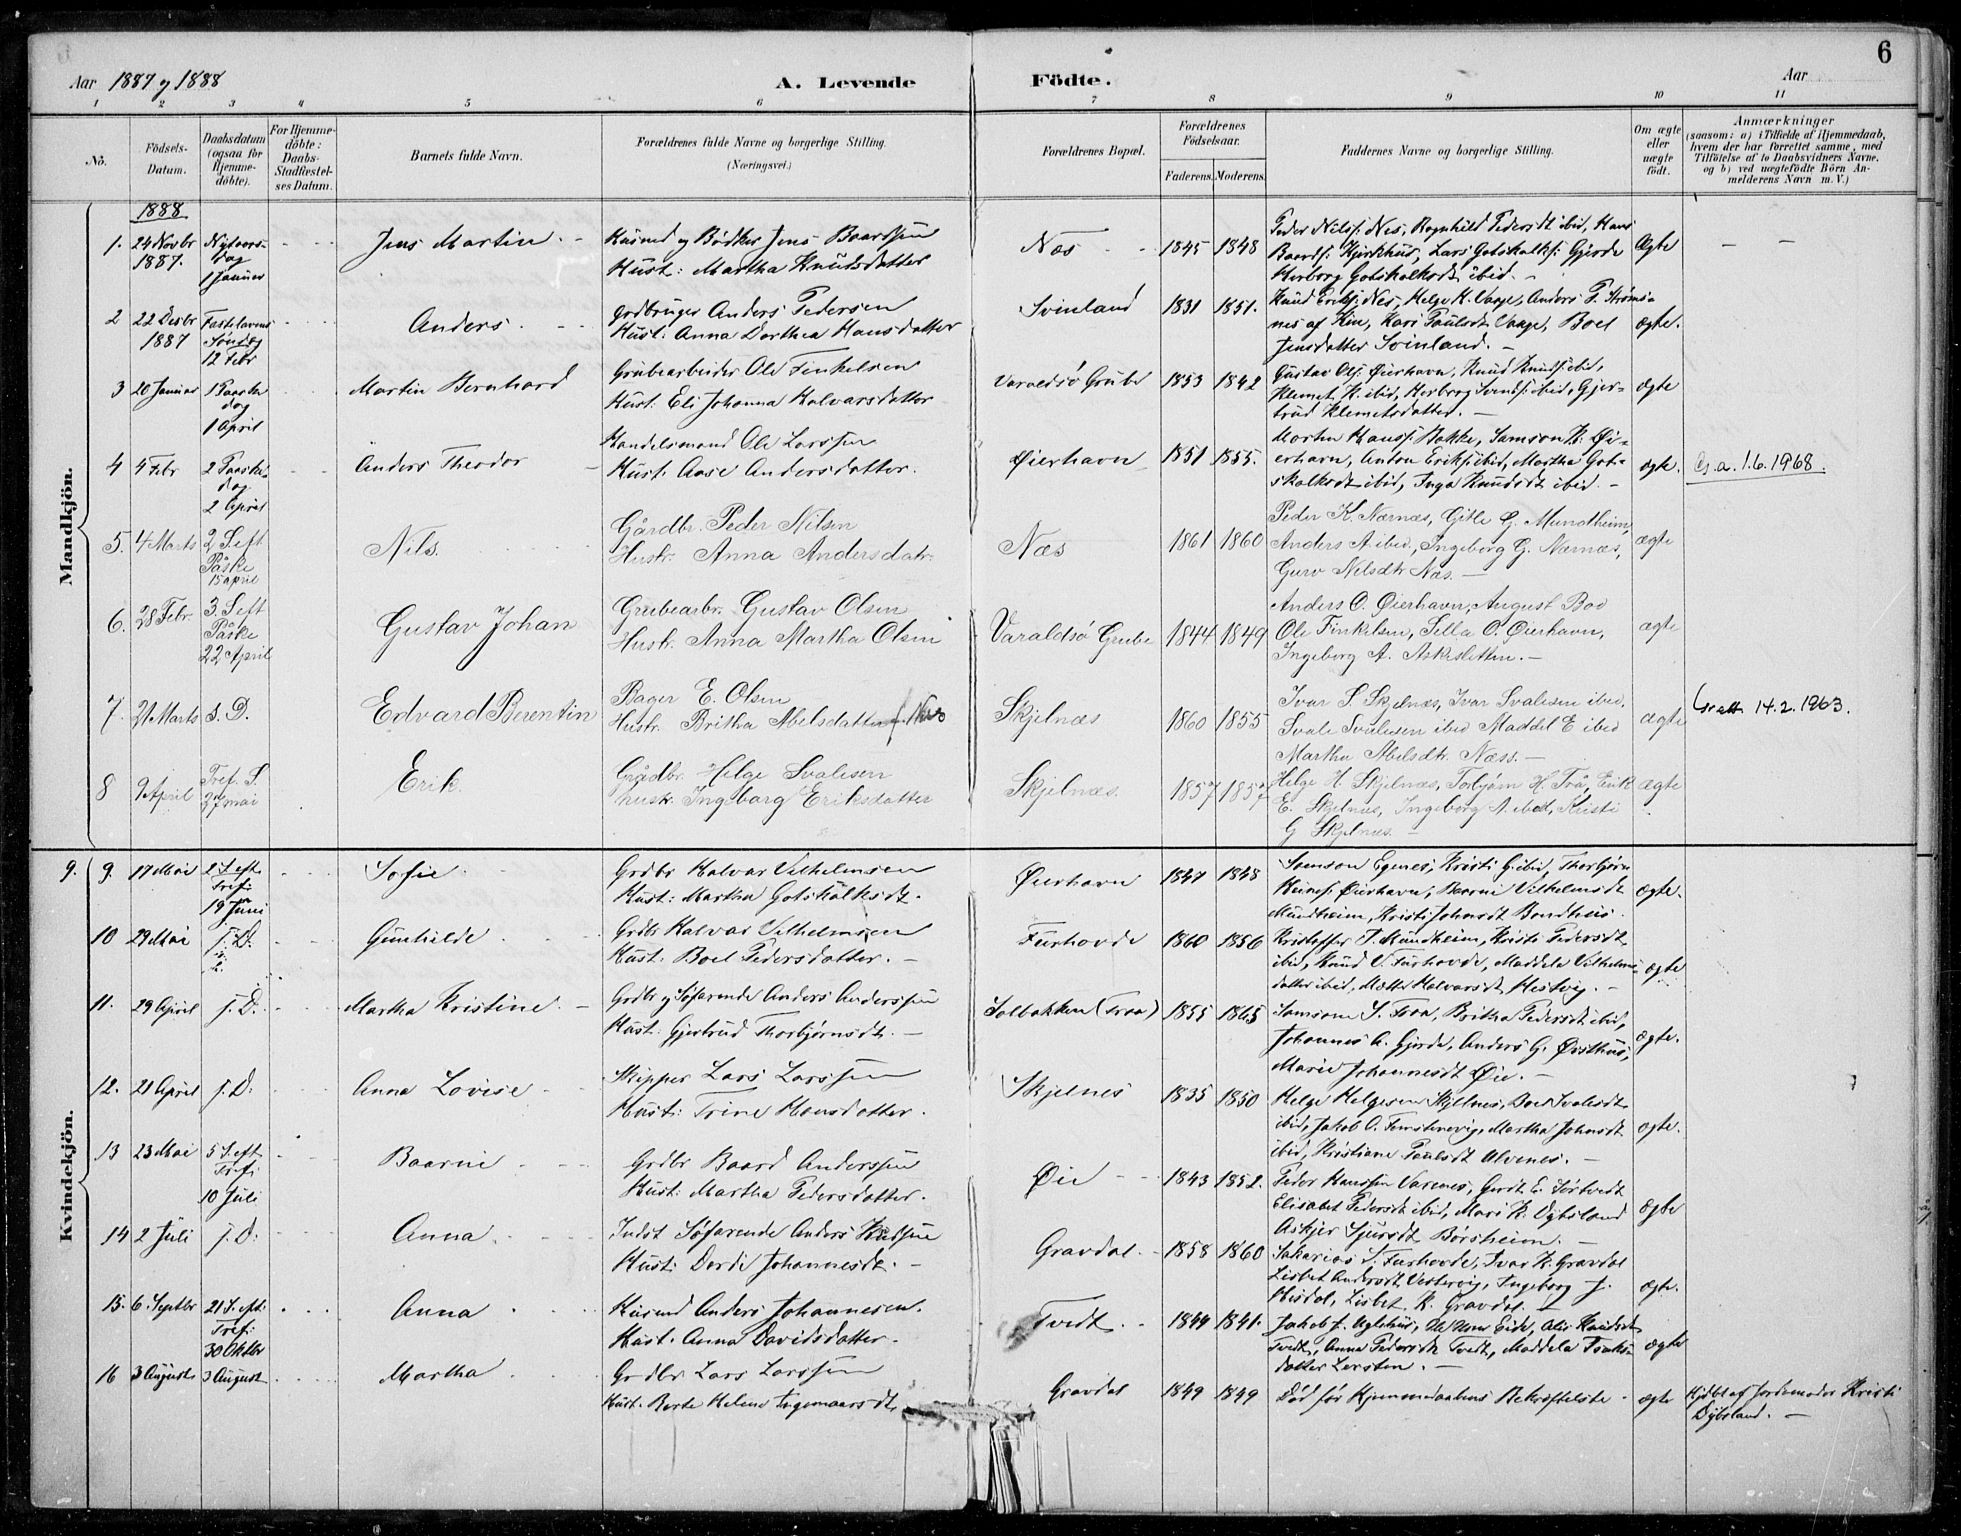 Aar 1887 og 1888
A. Levende Födte.
Aar
6
1 2 3 4 5 6 7 8 9 10 11
No.
Födsels-Datum.
Daabsdatum (ogsaa for Hjemme-döbte).
For Hjemme-döbte: Daabs-Stadfæstel-ses Datum.
Barnets fulde Navn.
Forældrenes fulde Navne og borgerlige Stilling. (Næringsvei.)
Forældrenes Bopæl.
Forældrenes Födselsaar.
Faderens. Moderens.
Faddernes Navne og borgerlige Stilling.
Om ægte eller uægte födt.
Anmærkninger
(saasom: a) i Tilfælde af Hjemmedaab, hvem der har forrettet samme, med Tilföielse af to Daabsvidners Navne. og b) ved uægtefödte Börn An-melderens Navn m. V.)
Mandkjön.
1888
1. 24 Novbr 1887. Nytaars-dag 1 Januar Jens Martin Husmd og Bødker Jens Baardsen Hust: Martha Knudsdatter Næs 1845 1848 Peder Nilss: Nes, Ragnhild Pedersdt ibid, Hans
Baards: Kjærkhus, Lars Gotskalks: Gjerde
Herborg Gotskalksdt ibid. Ægte
2 22 Desbr 1887 Fastelavns Søndag 12 Febr Anders. Grdbruger Anders Pedersen Hust: Anna Dorthea Hansdatter Svinland 1831 1851. Knud Eriks: Nes, Helge K. Vaage, Anders P. Strøms-
nes af Kin, Kari Paulsdt Vaage, Boel
Jensdatter Svinland. ægte.
3 20 Januar 1 Paaske dag 1 April Martin Bernhard Grubearbeider Ole Finkelsen Hust: Eli Johanna Halvarsdatter Varaldsø Grube 1853 1842 Gustav Ols: Øierhavn, Knud Knuds: ibid,
Klemet K. ibid, Herborg Svends: ibid, Gjer-
trud Klemetsdatter. ægte
4 4 Febr 2 Paaske-dag. 2 April Anders Theodor Handelsmand Ole Larssen Hust: Aase Andersdatter. Øierhavn 1851 1855. Morten Hanss: Bakke, Samson K. Øi-
erhavn, Andrea Eriks: ibid, Martha Got-
skalksdt ibid, Inga Knudsdt ibid. ægte. a. 1.6.1968.
5. 4 Marts 2 S. eft Påske 15 april Nils. Gårdbr. Peder Nilsen Hustr. Anna Andersdatr. Næs 1861 1860 Peder K. Nærnæs, Gitle G. Mundheim,
Anders A. ibid., Ingeborg G. Nærnæs,
Guro Nilsdtr Næs. ægte
6. 28 Febr. 3. S eft Påske 22 April Gustav Johan Grubearbr. Gustav Olsen Hustr. Anna Martha Olsen Varaldsö Grube 1844 1849 Anders O. Øierhavn, August Boo
Ole Finkelsen, Sella O. Øierhavn,
Ingeborg A. Askesletten. ægte
7. 21 Marts s. D. Edvard Berentin Bager E. Olsen Hustr. Britha Abelsdatter f. Næs Skjelnæs 1860 1855 Ivar S. Skjelnæs, Ivar Svalesen ibid,
Svale Svalesen ibid Maddel E ibid
Martha Abelsdtr. Næss. ægte 14.2.1963.
8 9 April Tref. S. 27 mai Erik. Gårdbr. Helge Svalesen hustr. Ingeborg Eriksdatter Skjelnæs. 1857 1857 Helge H. Skjelnæs, Torbjørn H. Trå, Erik
E. Skjelnæs, Ingeborg A. ibid, Kristi
G Skjelnæs. ægte
Kvindekjön.
9. 9. 17 Mai 2 S. eft. Tref: 19 Juni Sofie Grdbr Halvar Vilhelmsen Hust: Martha Gotskalksdt. Øierhavn 1847 1848 Samson Egenes, Kristi G. ibid, Thorbjørn
Øierhavn, Baarni Vilhelmsdt
Mundheim, Kristi Johnsdt Bondhus. ægte.
10 29 Mai Gunhilde Grdbr Halvar Vilhelmsen Hust: Boel Pedersdatter. Furhovde 1860 1856 Kristoffer P. Mundheim, Kristi Pedersdt
ibid, Knud V. Furhovde, Maddela Vilhelms-
datter ibid, Mætte Halvarsdt Hesvig. ægte
11. 29 April s. D. Martha Kristine Grdbr og Søfarende Anders Anderssen Hust: Gjertrud Thorbjørnsdt. Solbakken (Traa) 1855 1865 Samson J. Traa, Britha Pedersdt ibid,
Johannes A. Gjerde, Anders G. Øvsthus,
Marie Johannesdt Øie. ægte.
12. 21 April s. D. Anna Lovise Skipper Lars Larssen Hust: Trine Hansdatter. Skjelnes 1835 1850 Helge Helgesen Skjelnes, Boel Svalesdt
ibid, Jakob O. Femstenevig, Martha Johnsdt
ibid, Kristiane Paulsdt Alvenes. ægte.
13 23 Mai 5 S. eft Tref: 10 Juli Baarni Grdbr Baard Anderssen Hust: Martha Pedersdatter. Øie 1843 1852. Peder Hanssen Varenes, Gerdt E. Sørtvedt
Elisabet Pedersdt ibid, Mari K. Dybsland
Askjer Sjursdt Børsheim. ægte
14 2 Juli s. D. Anna Indst Søfarende Anders Hust: Dordi Johannesdt. Gravdal 1858 1860 Sakarias S. Furhovde, Ivar K. Gravdal
Lisbet Andersdt Vestervig, Ingeborg J.
Hisdal, Lisbet K. Gravdal. ægte.
15. 6. Septbr 21 S. eft: Tref: 30 Oktbr Anna Husmd Anders Johannesen. Hust: Anna Davidsdatter. Tvedt. 1844 1841. Jakob J. Uglehus, Eide, Knudsdt
Tvedt, Anna Pedersdt Tvedt, Maddela
datter ægte
16 3 August 3 August Martha Grdbr. Lars Larssen Hust: Berte Helene Ingemaarsdt. Gravdal 1849 1849 Død før Hjemmedaabens Bekræftelse ægte Hjdbt af Jordemoder Kristi
Dybsland.